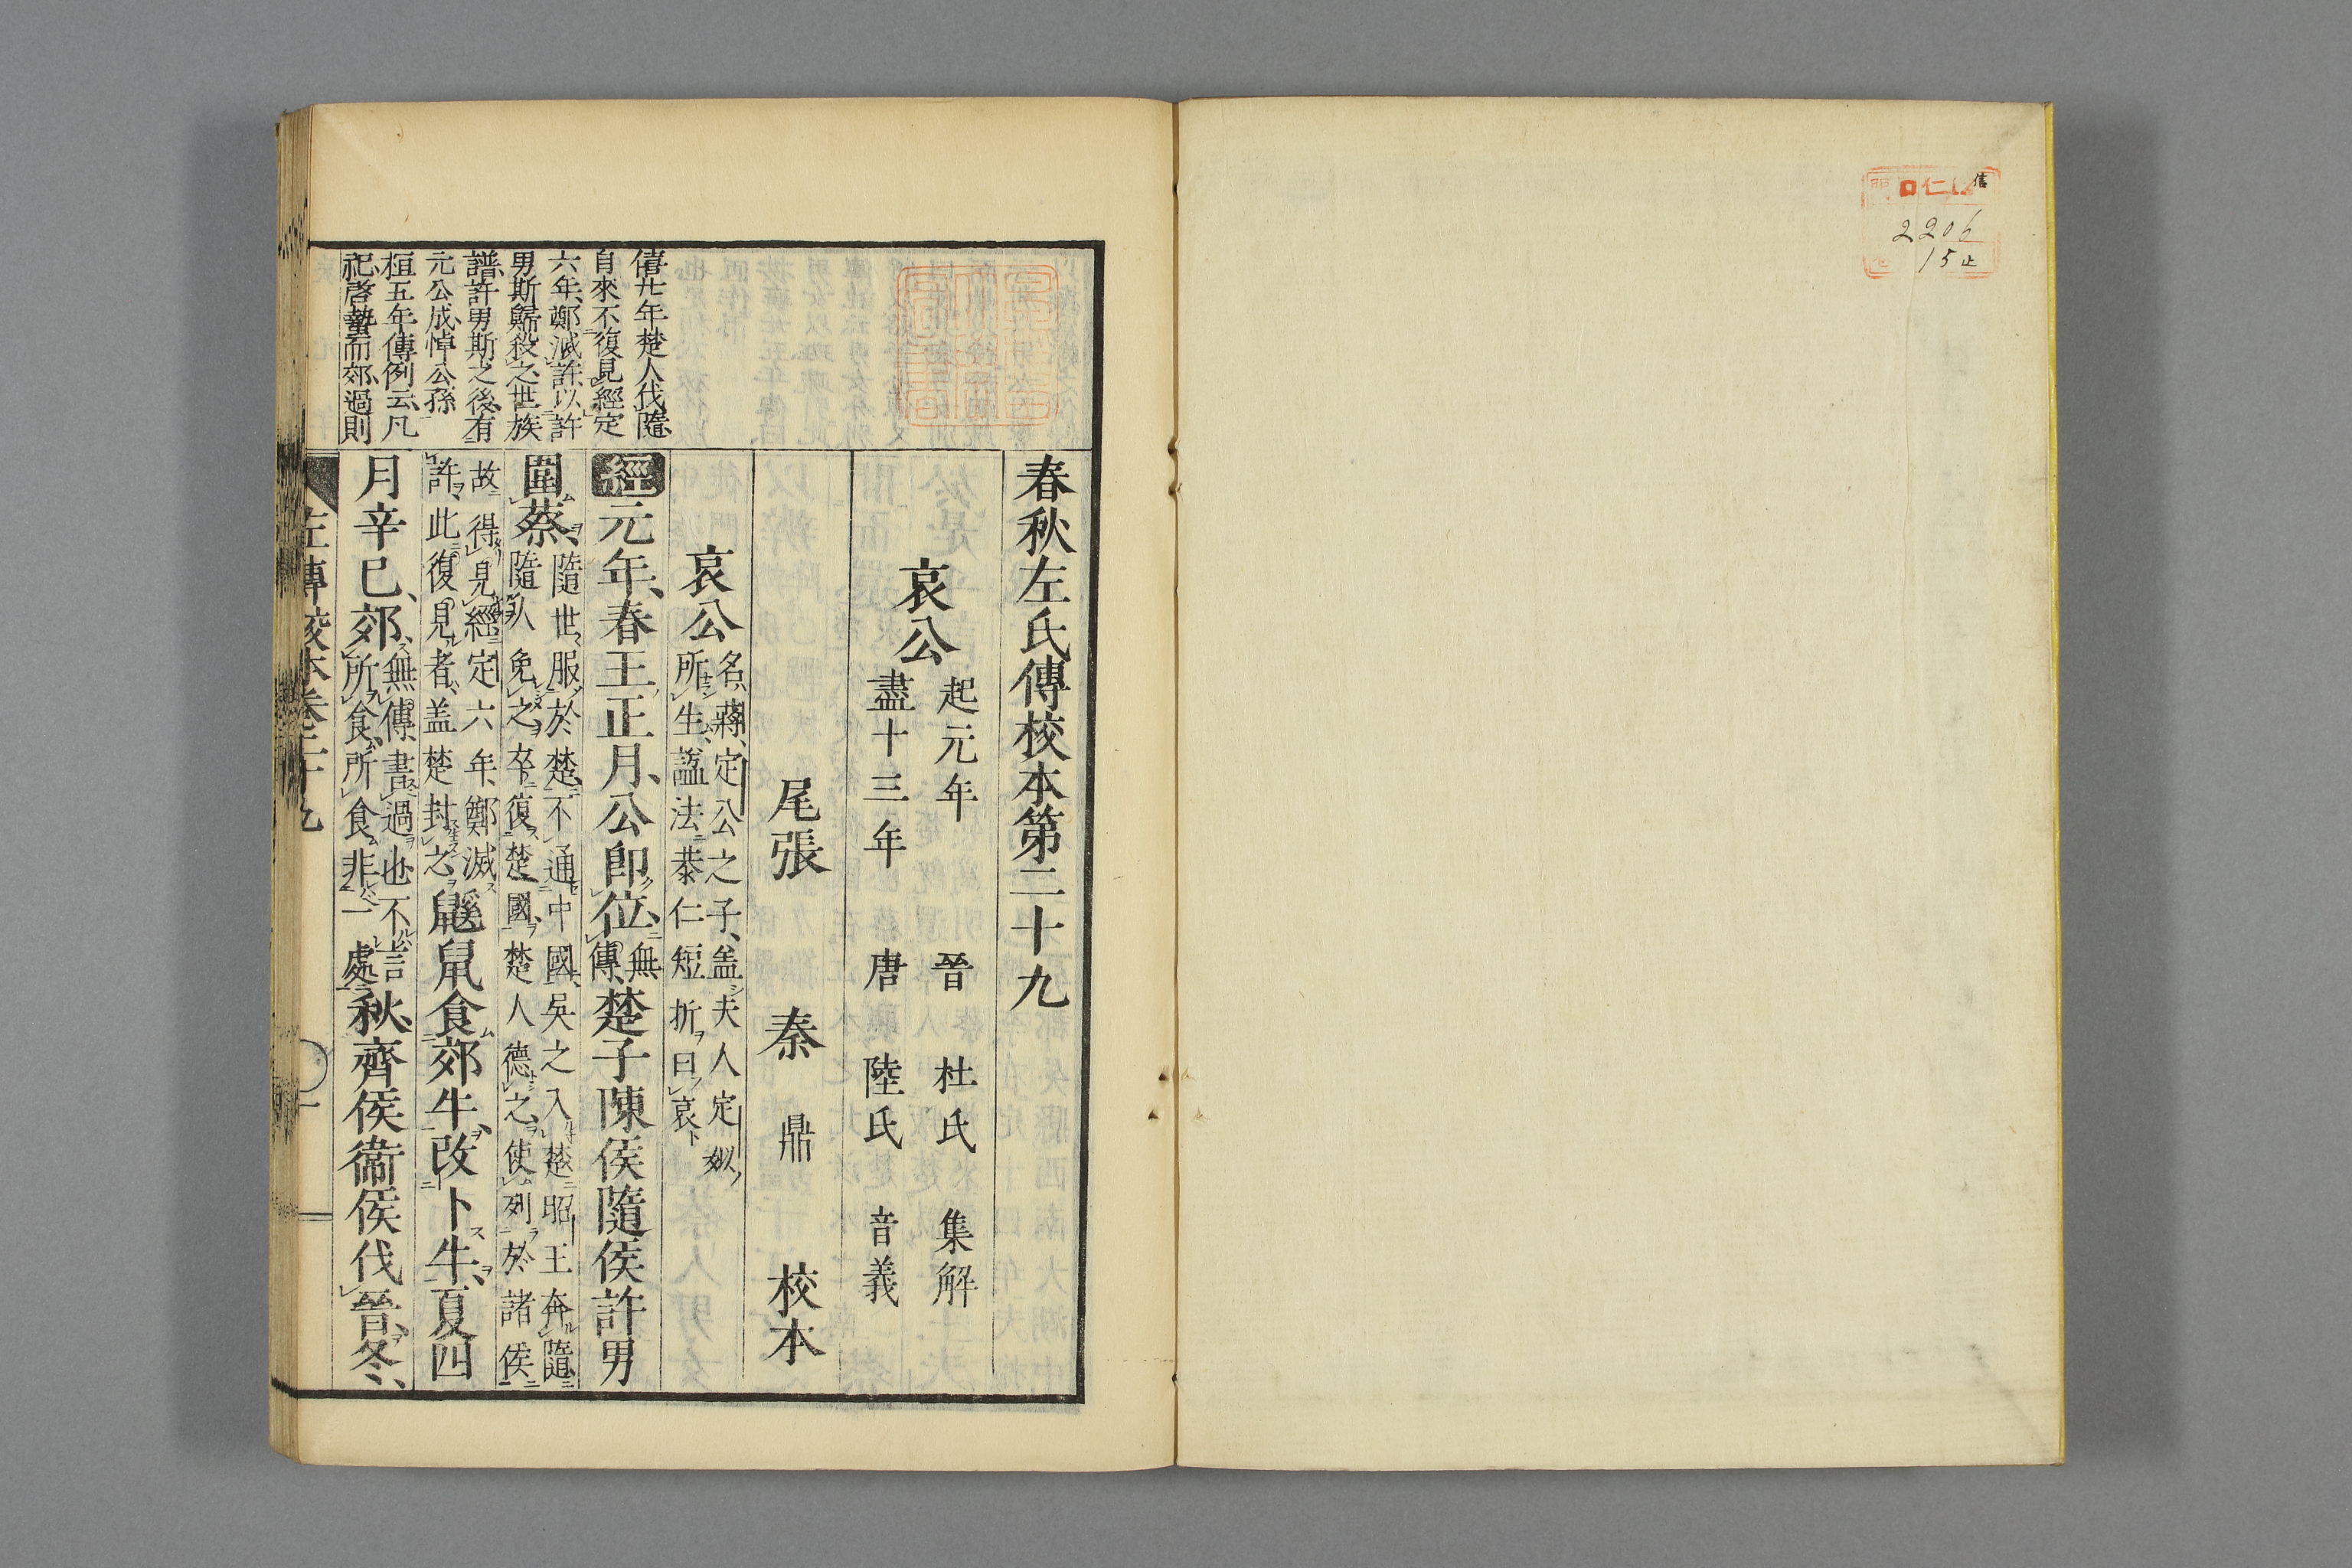 2206
15止
春秋左氏傳校本第二十九
哀公
起元年
盡十三年
晉 杜氏 集解
唐 陸氏 音義
尾張 秦 鼎 校本
哀公
名、蔣、定公之子、盖夫人定姒ノ
所生、諡法ニ恭仁短折ヲ曰哀ト
經元年、春王正月、公即位、
無
傳、
楚子陳侯隨侯許男
圍蔡、
隨世服於楚、不通中國、吳之入楚昭王奔隨
隨人免之卒復楚國、楚人德之、使列於諸侯
故得見經定六年、鄭滅
許、此復見者、盖楚封之
鼷鼠食郊牛、改卜牛、夏四
月辛巳、郊、
無傳、書過也不言
所食、所食非一處
秋、齊侯衞侯伐晉、冬、
僖廿年楚人伐隨
自來不復見經定
六年、鄭滅許、以許
男斯歸殺之世族
譜、許男斯之後、有
元公成、悼公孫
桓五年傳例云、凡
祀、啓蟄而郊、過則
左傳校本卷二十九
一